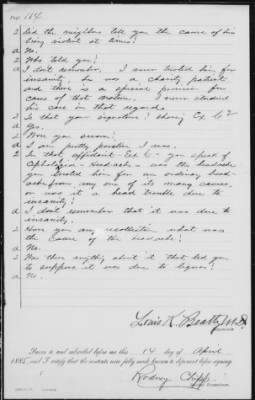 Page 114
Q Did the neighbor tell you the cause of his
being violent at times?
A No.
Q Who told you?
A I don't remember. I never treated him for
insanity, he was a charity patient
and there is a special provision for
cases of that nature. I never studied
his case in that regard.
Q Is that your signature? showing Ex 6?
A Yes.
Q Were you sworn?
A I am pretty positive I was.
Q In that affidavit Ex 6 - you speak of
Cephalalgia - Headache was the headache
you treated him for an ordinary head-
ache from any one of its many causes,
or was it a head trouble due to
insanity?
A I don't remember that it was due to
insanity.
Q Have you any recollection what was
the cause of the headache?
A No.
Q Was there anything about it that led you
to suppose it was due to liquor?
A No.
Louis K. Beatty M.D.
Sworn to and subscribed before me this 14 day of April
1885, and I certify that the contents were fully made known to deponent before signing.
Rodney